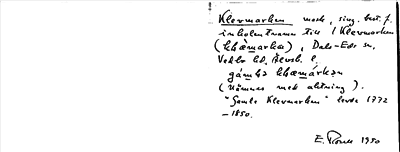 Klevmarken mask. sing. best. f.
inkolentnamn till 1 Klevmarken
(kḷæ̀marka), Dals-Eds sn,
Vedbo hd, Älvsb. l.
gámḷə kḷæmárkən
(Nämnes med aktning).
"Gamle Klevmarken" levde 1772
–1850.
E. 1950